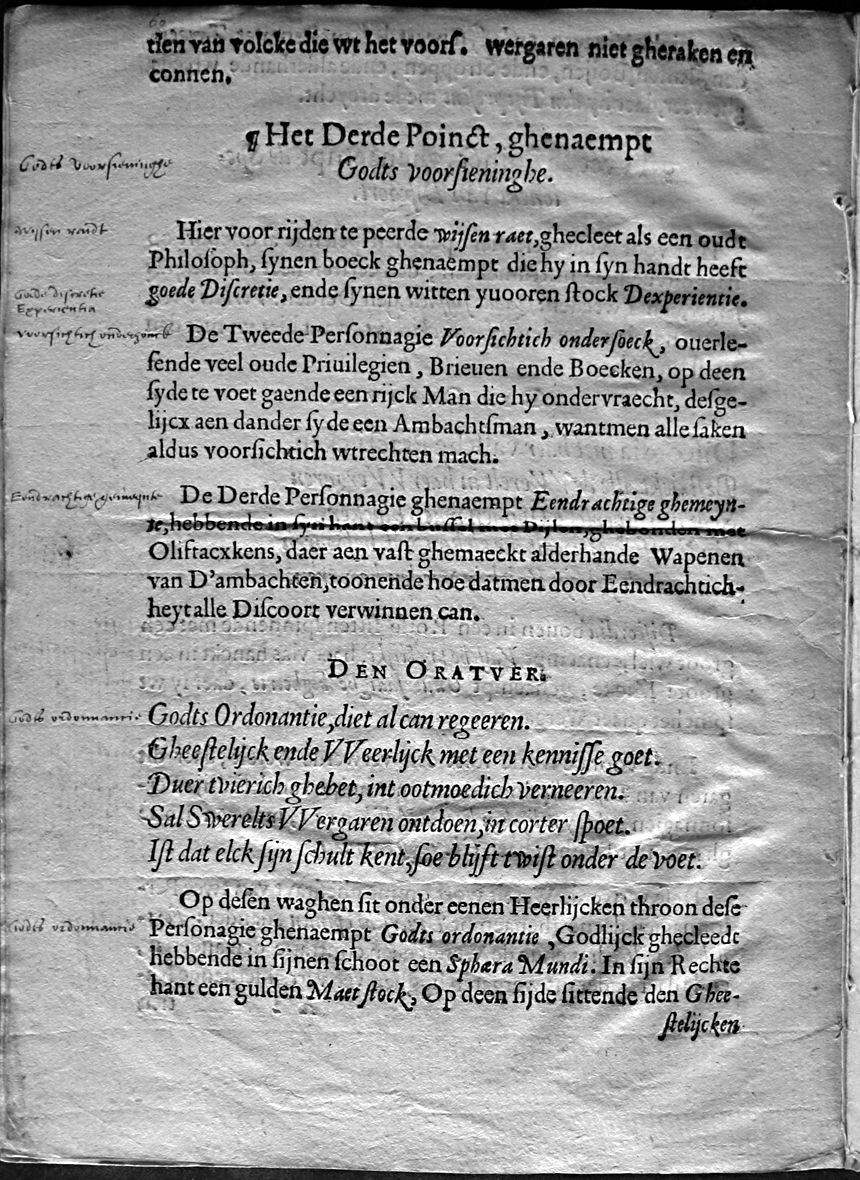 tien van volcke die wt het voorſ. wergaren niet gheraken en
connen.
¶ Het Derde Poinct, ghenaempt
Godts voorſieninghe.
Godts voorſieninghe
Hier voor rijden te peerde wijſen raet, ghecleet als een oudt
wijſen raedt
Philoſoph, ſynen boeck ghenaempt die hy in ſyn handt heeft
goede Diſcretie, ende ſynen witten yuooren ſtock Dexperientie.
Goede diſcretie
Experientia
De Tweede Perſonnagie Voorſichtich onderſoeck, ouerle-
voorſichtich onderſoeck
ſende veel oude Priuilegien, Brieuen ende Boecken, op deen
ſyde te voet gaende een rijck Man die hy ondervraecht, deſge-
lijcx aen dander ſyde een Ambachtſman, wantmen alle ſaken
aldus voorſichtich wtrechten mach.
De Derde Perſonnagie ghenaempt Eendrachtige ghemeyn-
Eendrachtige gemeynte
te, hebbende in ſyn hant een buſſel met Pijlen, ghebonden met
Oliftacxkens, daer aen vaſt ghemaeckt alderhande Wapenen
van D'ambachten, toonende hoe datmen door Eendrachtich-
heyt alle Diſcoort verwinnen can.
DEN ORATVER.
Godts Ordonantie, diet al can regeeren.
Godts ordonnantie
Gheeſtelijck ende VVeerlijck met een kenniſſe goet.
Duer tvierich ghebet, int ootmoedich verneeren.
Sal Swerelts VVergaren ontdoen, in corter ſpoet.
Iſt dat elck ſijn ſchult kent, ſoe blijft twiſt onder de voet.
Op deſen waghen ſit onder eenen Heerlijcken throon deſe
Perſonagie ghenaempt Godts ordonantie, Godlijck ghecleedt
Godts ordonnantie
hebbende in ſijnen ſchoot een Sphæra Mundi. In ſijn Rechte
hant een gulden Maet ſtock, Op deen ſijde ſittende den Ghee-
ſtelijcken